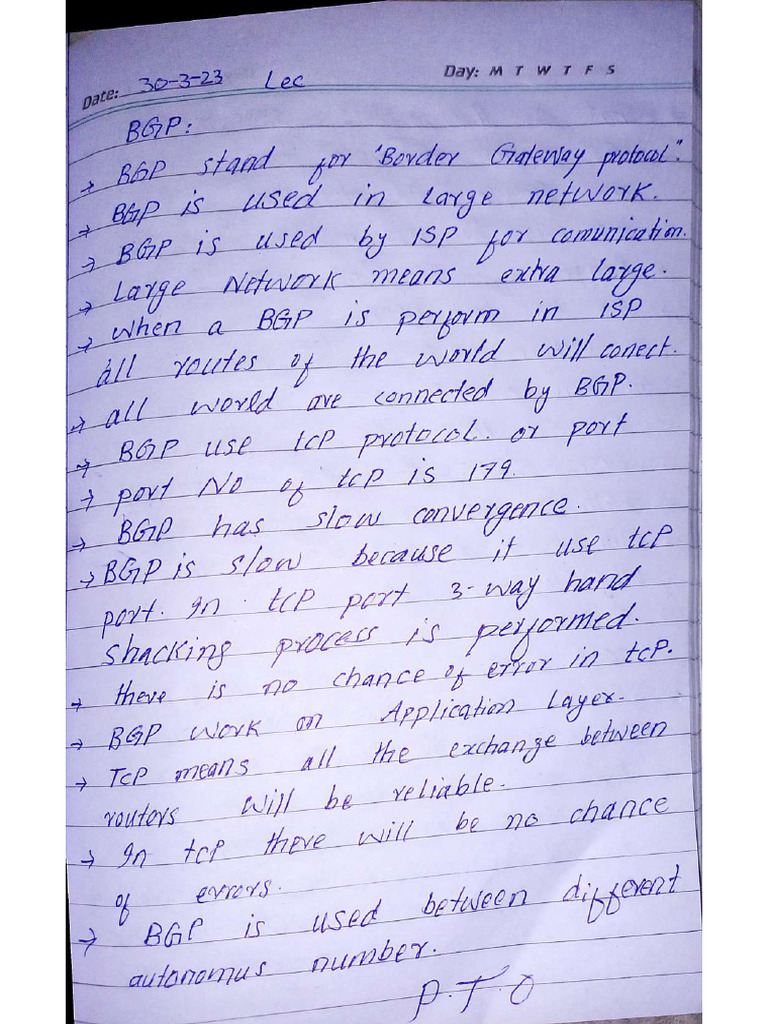 Date: 30-3-23 Lec Day: M T W T F S
BGP:
→ BGP stand for "Border Gateway protocol".
→ BGP is used in large network.
→ BGP is used by ISP for comunication.
→ Large Network means extra large.
→ when a BGP is perform in ISP
all routes of the world will conect.
→ all world are connected by BGP.
→ BGP use tcp protocol. or port
→ port No of tcp is 179.
→ BGP has slow convergence.
→ BGP is slow because it use tcp
port. In tcp port 3-way hand
shacking process is performed.
→ there is no chance of error in tcp.
→ BGP work on Application Layer.
→ Tcp means all the exchange between
routors will be reliable.
→ In tcp there will be no chance
of errors.
→ BGP is used between different
autonomus number.
P.T.O